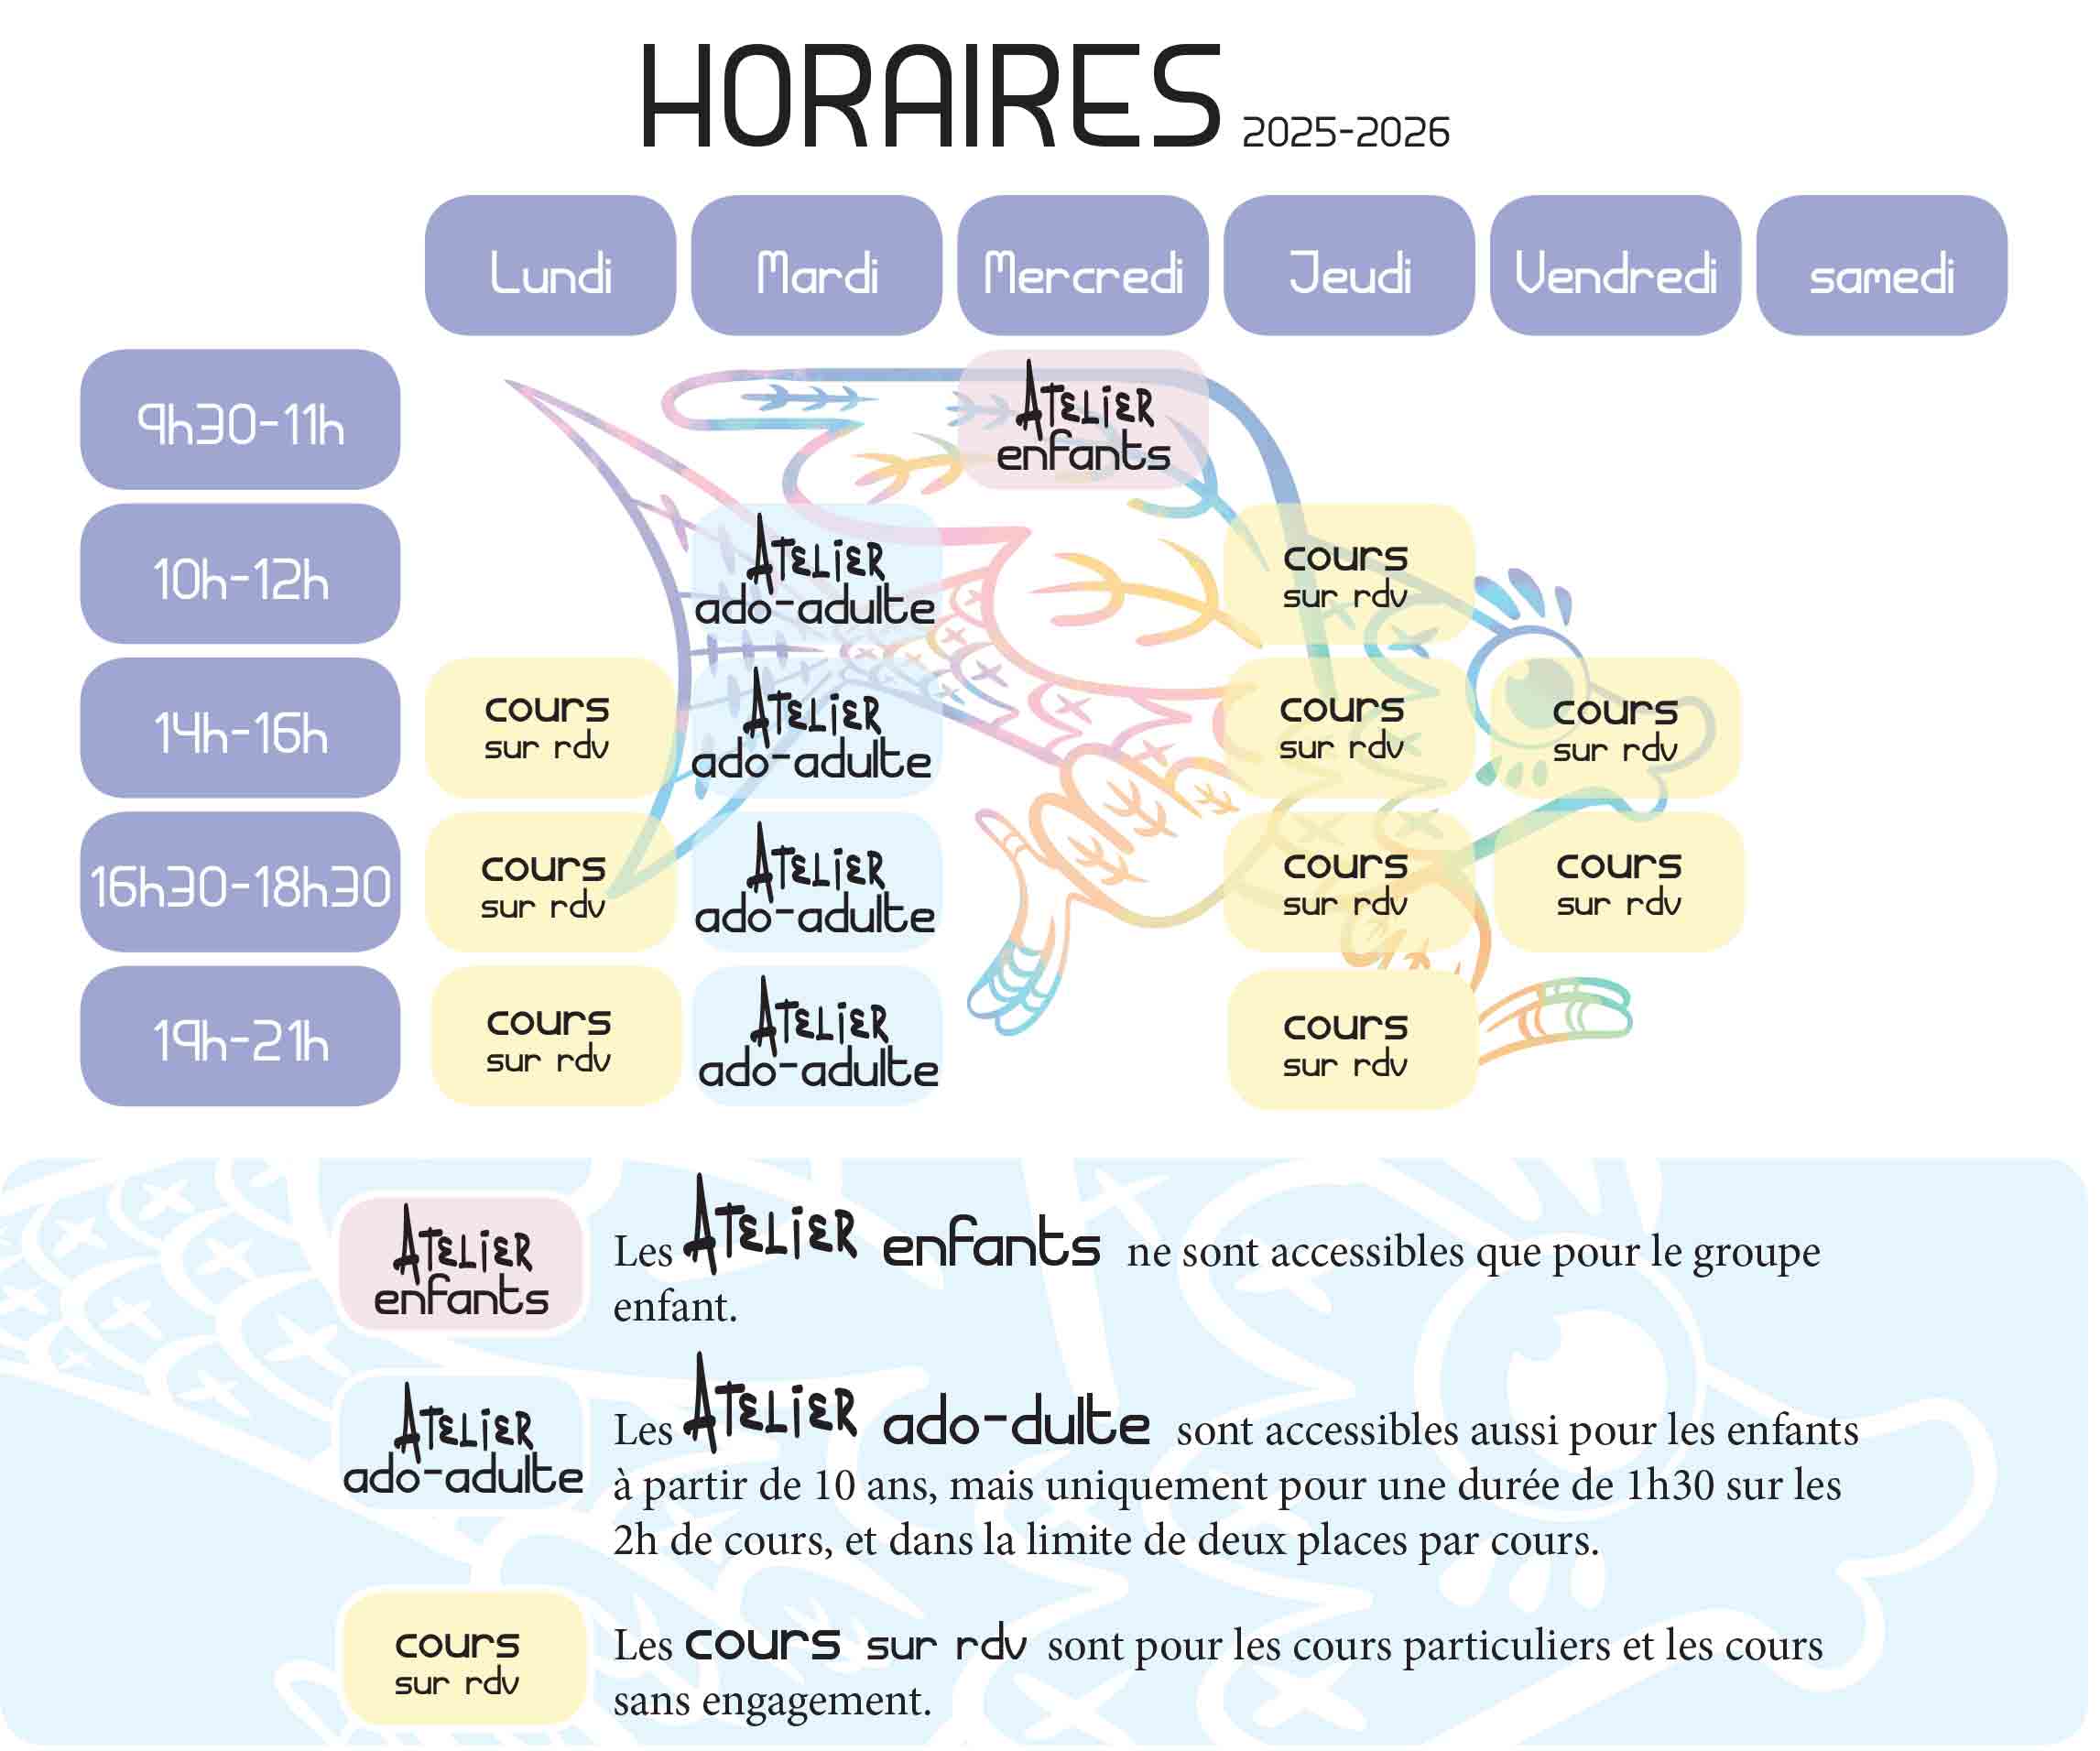 HORAIRES 2025-2026
Lundi Mardi Mercredi Jeudi Vendredi samedi
9h30-11h
ATELiER
enfants
10h-12h
ATELiER
ado-adulte
cours
sur rdv
14h-16h
cours
sur rdv
ATELiER
ado-adulte
cours
sur rdv
cours
sur rdv
16h30-18h30
cours
sur rdv
ATELiER
ado-adulte
cours
sur rdv
cours
sur rdv
19h-21h
cours
sur rdv
ATELiER
ado-adulte
cours
sur rdv
ATELiER
enfants
Les ATELiER enfants ne sont accessibles que pour le groupe
enfant.
ATELiER
ado-adulte
Les ATELiER ado-dulte sont accessibles aussi pour les enfants
à partir de 10 ans, mais uniquement pour une durée de 1h30 sur les
2h de cours, et dans la limite de deux places par cours.
cours
sur rdv
Les cours sur rdv sont pour les cours particuliers et les cours
sans engagement.